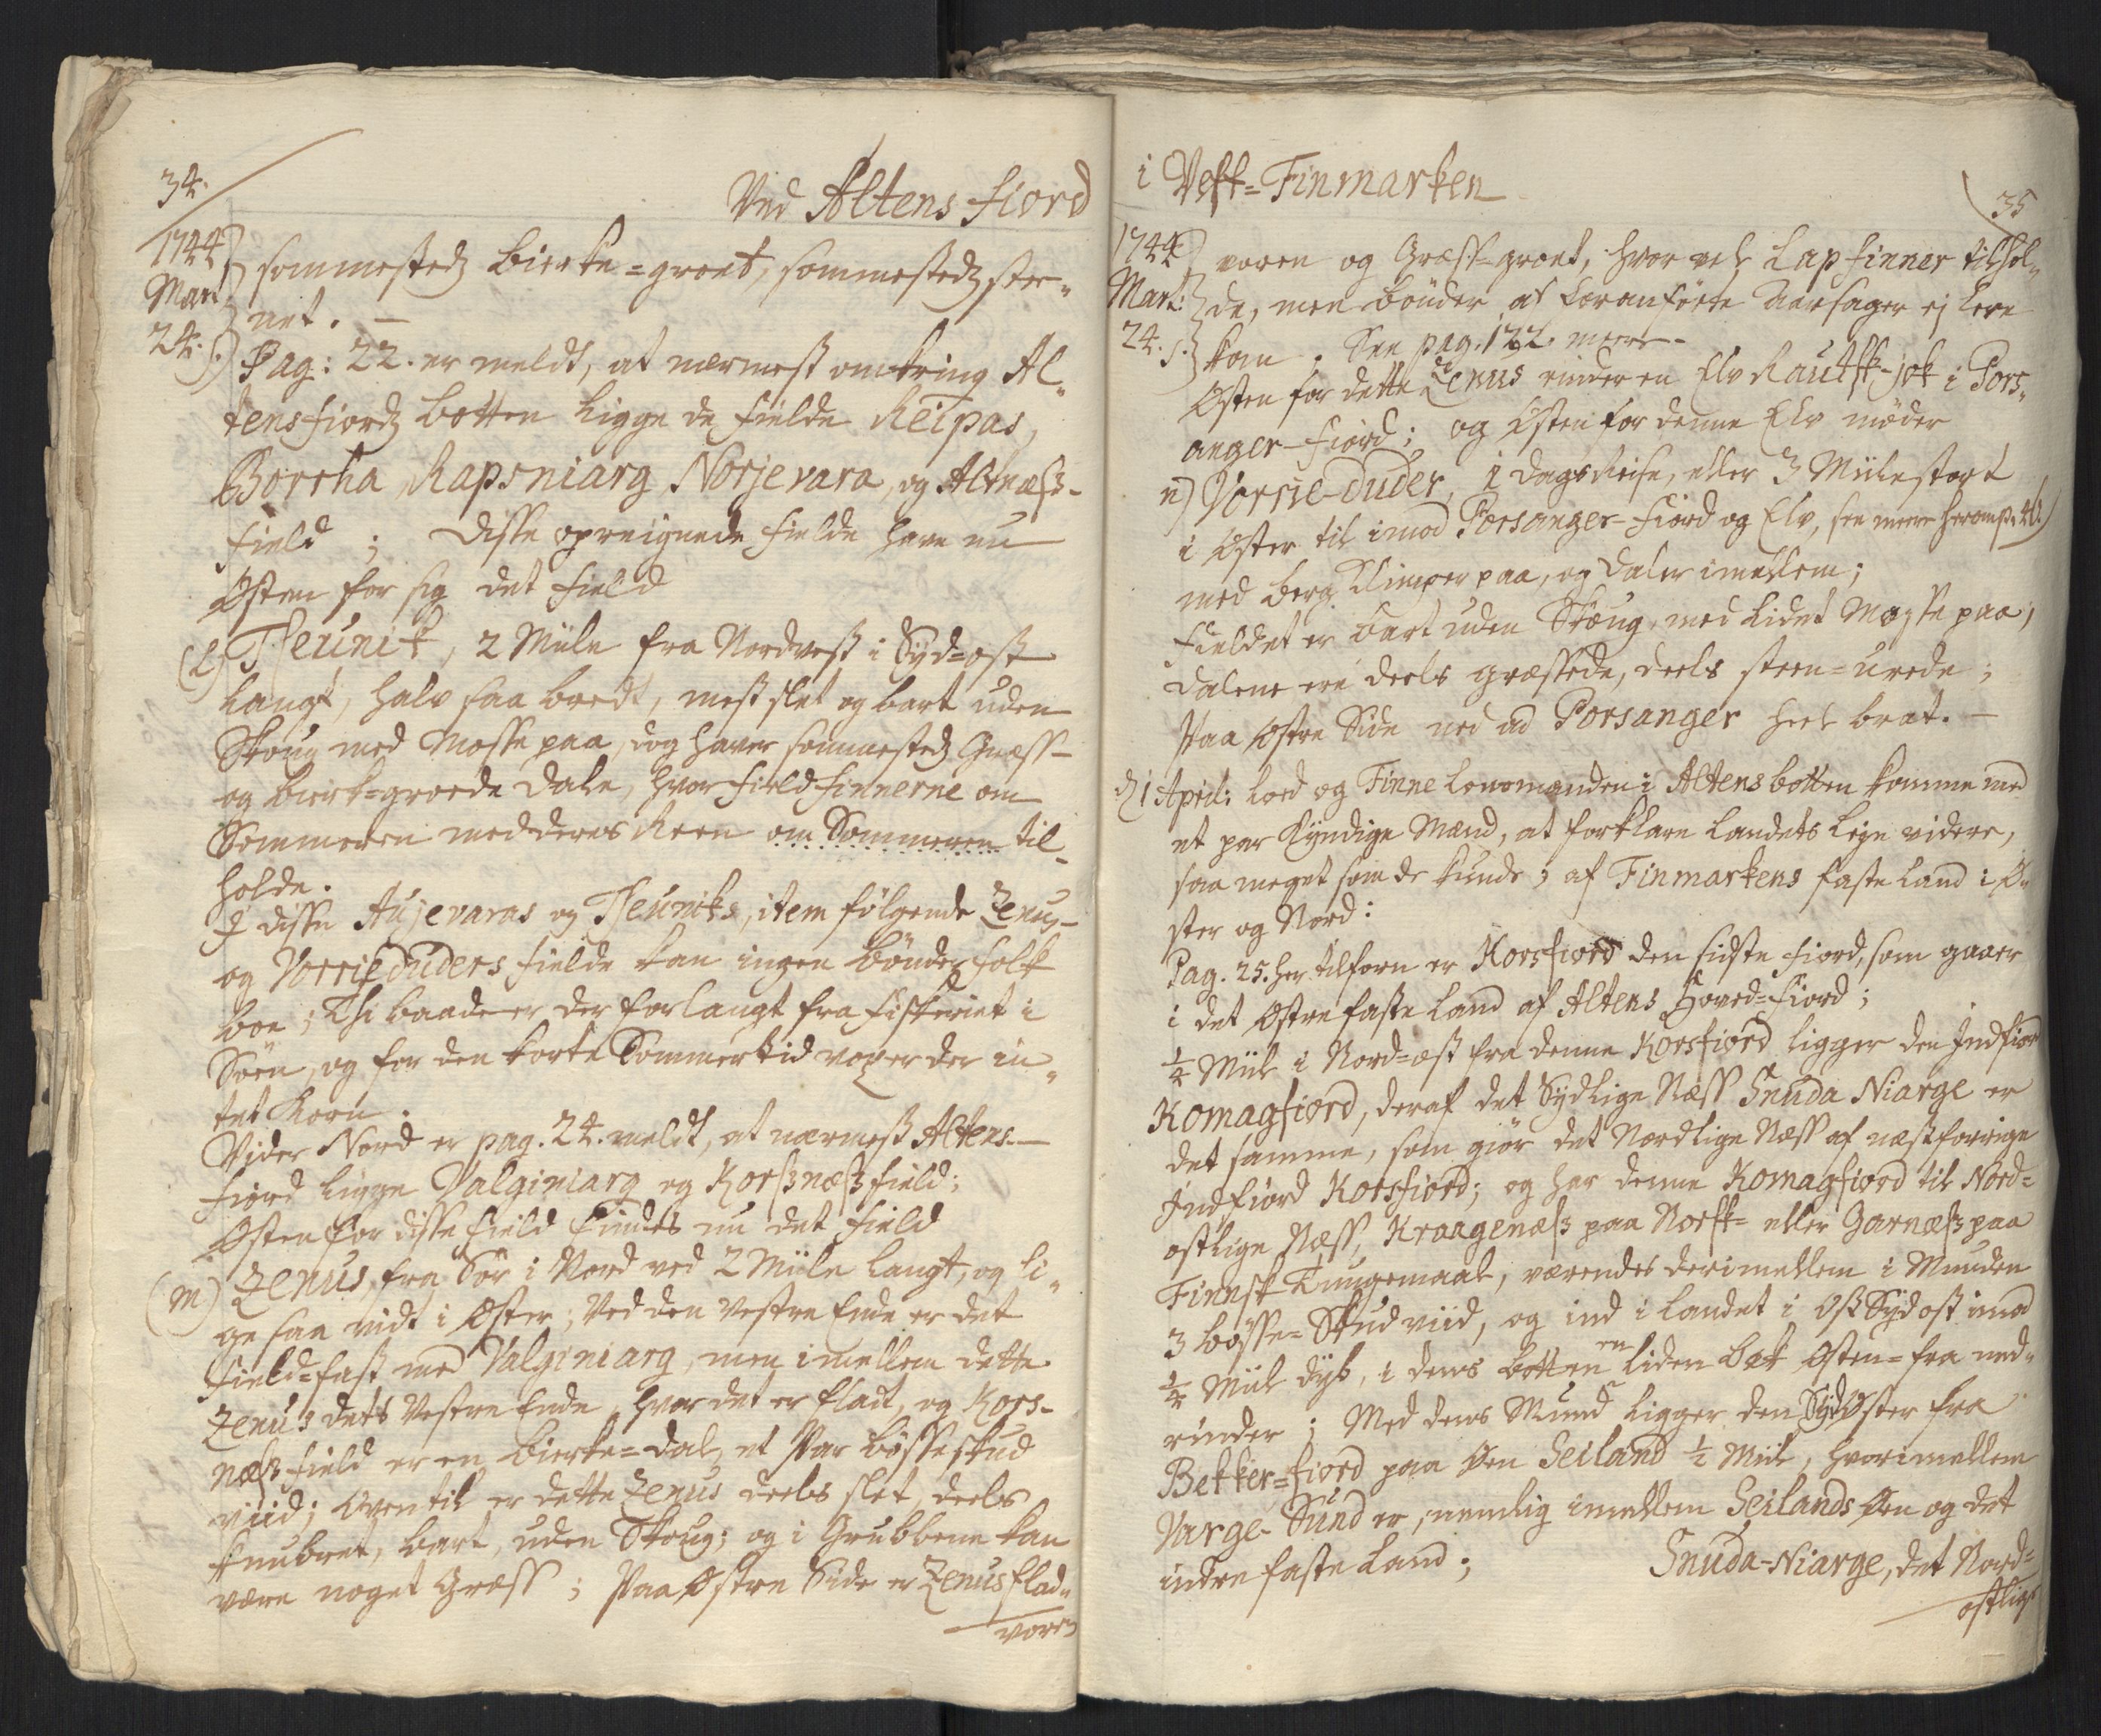 34.
Ved Altens Fiord
1744
Mart:
24. s.)
sommestedz Bierke=groet, sommestedz stee„
net. —
Pag: 22. er meldt, at nærmest omkring Al„
tensfiordz botten ligge de Fielde Reipas,
Borrha, Rapsniarg, Norjevara, og Altnæss-
Field; Disse opreignede Fielde have nu
Østen for sig det Field
(l) Tseunik, 2 Miile fra Nordvest i Syd=ost
langt, halv saa bredt, mest slet og bart uden
Skoug med Mosse paa, dog haver sommestedz Græss-
og bierk=groede Dale, hvor Fieldfinnerne om
Sommeren med deres Reen om Sommeren til-
holde.
I disse Aujevaras og Tseuniks, item følgende Zenus-
og Vorrieduders Fielde kan ingen Bönder folk
boe; Thi baade er der forlangt fra Fiskeriet i
Söen, og for den korte Sommertid voxer der in„
tet Korn.
Vider Nord er pag. 24. meldt, at nærmest Altens-
fiord ligge Valginiarg og Korssnæss field;
Østen for disse Field findes nu det Field
(m) Zenus, fra Sör i Nord ved 2 Miile langt, og li„
ge saa vidt i Øster; Ved den Vestre Ende er det
Field=fast med Valginiarg, men imellem dette
Zenus dets Vestre Ende, hvor det er fladt, og Kors-
næss field er en bierke=dal, et Par bösseskud
viid; Oventil er dette Zenus deels slet, deels
knubret, bart, uden Skoug; og i Grubbene kan
være noget Græss; Paa Østre Side er Zenus flad„
voren
i Vest=Finmarken
35
1744
Mart:
24. s.
voren og Græss=groet, hvor vel Lapfinner tilhol„
de, men bönder af foranförte Aarsager ej leve
kan. See pag. 122. meere.
Østen for dette Zenus rinder en Elv Rautsk-jok i Pors„
anger-Fiord; og Østen for denne Elv möder
n) Vorrie-duder, 1 dags Reise, eller 3 Miile stort
i Øster til imod Porsanger-Fiord og Elv, see meere herom p. 40.)
med berg Klimper paa, og Daler imellem;
Fieldet er bart uden Skoug, med lidet Mosse paa,
Dalene ere deels græssede, deels steen=urede;
Paa Østre Side ned ad Porsanger heel brat. —
d. 1 April: loed og Finne Lensmanden i Altensbotten komme med
et par kyndige Mænd, at forklare Landets Leje videre,
saa meget som de kunde; af Finmarkens faste Land i Ø„
ster og Nord:
Pag. 25. her tilforn er Korsfiord den sidste Fiord, som gaaer
i det Østre faste Land af Altens Hoved=Fiord;
1/4 Miil i Nord=ost fra denne Korsfiord ligger den Indfiord
Komagfiord, deraf det Sydlige Næss Snuda Niarge er
det samme, som giör det Nordlige Næss af næstforrige
Indfiord Korsfiord; og har denne Komagfiord til Nord=
ostlige Næss, Kraagenæss paa Norsk= eller Garnæss paa
Finnsk Tungemaal, værendes derimellem i Munden
3 bösse=Skud viid, og ind i Landet i Ost Sydost imod
1/4 Miil dyb, i deres botten en liden bæk Østen=fra ned„
rinder; Med deres Mund ligger den Syd Øster fra
Bekker=fiord paa Øen Seiland 1/2 Miil, hvorimellem
Varge-Sund er, nemlig imellem Seilands Øen og det
indre faste Land; Snuda-Niarge, det Nord=
ostlige